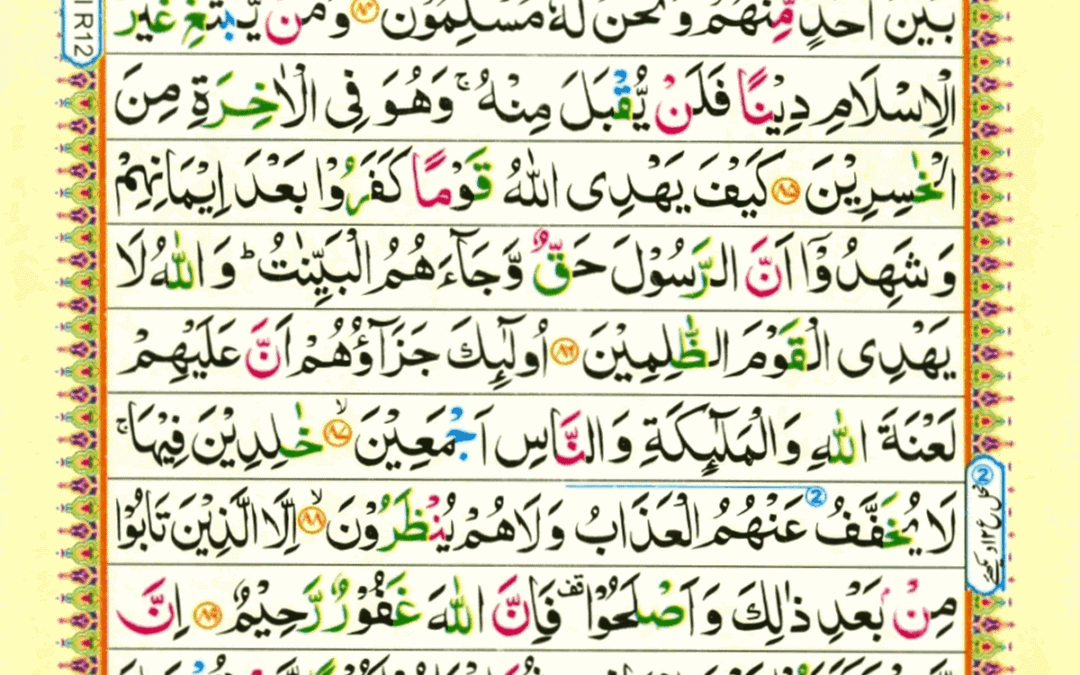 بَيْنَ اَحَدٍ مِّنْهُمْ وَنَحْنُ لَهٗ مُسْلِمُوْنَ ۝۸۴ وَمَنْ يَّبْتَغِ غَيْرَ
الْاِسْلَامِ دِيْنًا فَلَنْ يُّقْبَلَ مِنْهُ ۚ وَهُوَ فِى الْاٰخِرَةِ مِنَ
الْخٰسِرِيْنَ ۝۸۵ كَيْفَ يَهْدِى اللّٰهُ قَوْمًا كَفَرُوْا بَعْدَ اِيْمَانِهِمْ
وَشَهِدُوْۤا اَنَّ الرَّسُوْلَ حَقٌّ وَّجَآءَهُمُ الْبَيِّنٰتُ ؕ وَاللّٰهُ لَا
يَهْدِى الْقَوْمَ الظّٰلِمِيْنَ ۝۸۶ اُولٰٓئِكَ جَزَآؤُهُمْ اَنَّ عَلَيْهِمْ
لَعْنَةَ اللّٰهِ وَالْمَلٰٓئِكَةِ وَالنَّاسِ اَجْمَعِيْنَ ۙ۝۸۷ خٰلِدِيْنَ فِيْهَا ۚ
لَا يُخَفَّفُ عَنْهُمُ الْعَذَابُ وَلَا هُمْ يُنْظَرُوْنَ ۙ۝۸۸ اِلَّا الَّذِيْنَ تَابُوْا
مِنْۢ بَعْدِ ذٰلِكَ وَاَصْلَحُوْا ۟قف فَاِنَّ اللّٰهَ غَفُوْرٌ رَّحِيْمٌ ۝۸۹ اِنَّ
R12
2
2